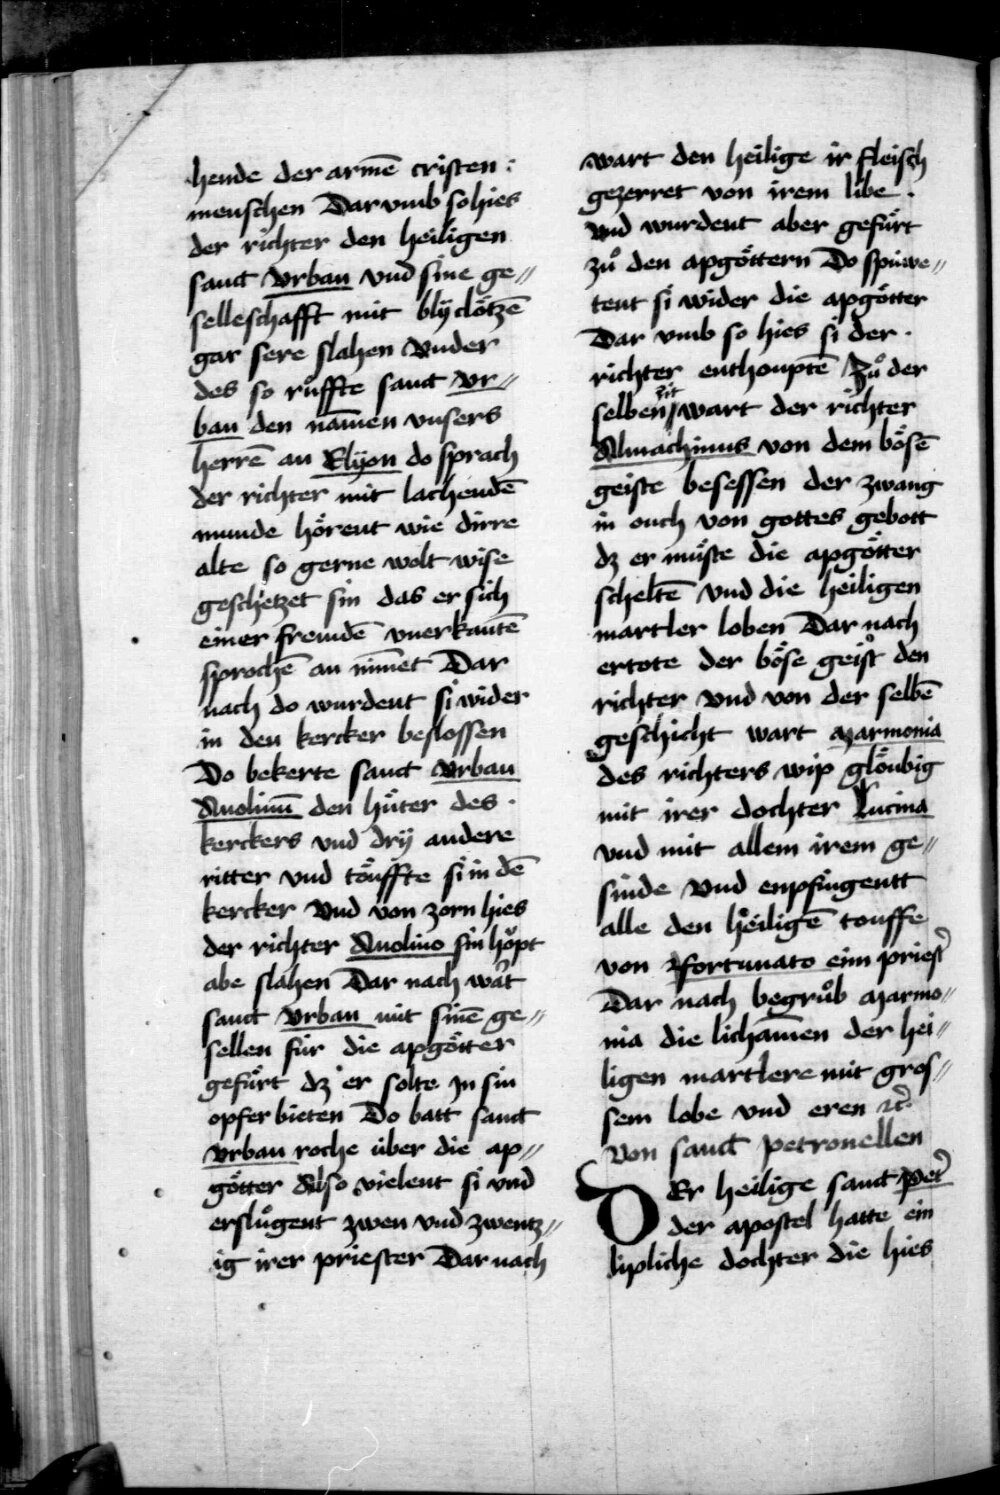 hende der armē cristen :
menschen Dar vmb so hies
der richter den heiligen
sanct vrban vnd sine ge〃
selleschafft mit bly clötzē
gar sere slahen Vnder
des so ruͦffte sanct vr〃
ban den nam̄en vnsers
herrē an Elyon do sprach
der richter mit lachendē
munde hörent wie dirre
alte so gerne wolt wise
geschetzet sin das er sich
einer fremdē vnerkantē
sprochē an nim̄et Dar
nach do wurdent si wider
in den kercker beslossen
Do bekerte sanct vrban
Anolinū den huͤter des ·
kerckers vnd dry andere
ritter vnd toͤuffte si in dē
kercker Vnd von zorn hies
der richter Anolino sin hoͤpt
abe slahen Dar nach wart
sanct Vrban mit sinē ge〃
sellen für die apgötter
gefuͤrt dz er solte jn sin
opfer bieten Do batt sanct
vrban roche über die ap〃
götter Also vielent si vnd
ersluͦgent zwen vnd zwentz〃
ig irer priester Dar nach
wart den heilige ir fleisch
gezerret von irem libe ·
Vnd wurdent aber gefuͤrt
zuͦ den apgöttern Do spüwe〃
tent si wider die apgötter
Dar vmb so hies si der ·
richter enthouptē Zuͦ der
selben zit wart der richter
Almachinus von dem bösē
geiste besessen der zwang
in ouch von gottes gebott
dz er muͤste die apgötter
scheltē vnd die heiligen
martler loben Dar nach
ertote der böse geist den
richter vnd von der selbē
geschicht wart Marmonia
des richters wip glöubig
mit irer dochter Lucina
vnd mit allem irem ge〃
sinde Vnd enpfingentt
alle den heiligē touffe
von Fortunato eim priest᷑
Dar nach begruͦb Marmo〃
nia die licham̄en der hei〃
ligen martlere mit gros〃
sem lobe vnd eren ꝛc᷑
Von sanct petronellen
DEr heilige sanct pet᷑
der apostel hatte ein
lipliche dochter die hies